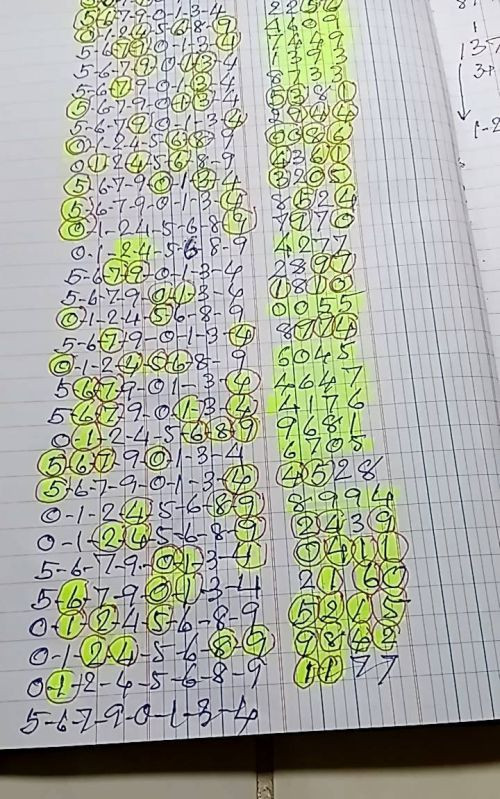 5-6-7-9-0-1-3-4 2256
0-1-2-4-5-6-8-9 4609
5-6-7-9-0-1-3-4 7449
5-6-7-9-0-1-3-4 1393
5-6-7-9-0-1-3-4 8733
5-6-7-9-0-1-3-4 5381
5-6-7-9-0-1-3-4 2744
0-1-2-4-5-6-8-9 0386
0-1-2-4-5-6-8-9 4361
5-6-7-9-0-1-3-4 3205
5-6-7-9-0-1-3-4 8524
0-1-2-4-5-6-8-9 7770
0-1-2-4-5-6-8-9 4277
5-6-7-9-0-1-3-4 2897
5-6-7-9-0-1-3-4 1810
0-1-2-4-5-6-8-9 0055
5-6-7-9-0-1-3-4 8774
0-1-2-4-5-6-8-9 6045
5-6-7-9-0-1-3-4 4647
5-6-7-9-0-1-3-4 4176
0-1-2-4-5-6-8-9 9681
5-6-7-9-0-1-3-4 6705
5-6-7-9-0-1-3-4 4528
0-1-2-4-5-6-8-9 8994
0-1-2-4-5-6-8-9 2439
5-6-7-9-0-1-3-4 0411
5-6-7-9-0-1-3-4 2160
0-1-2-4-5-6-8-9 5215
0-1-2-4-5-6-8-9 9842
0-1-2-4-5-6-8-9 1177
5-6-7-9-0-1-3-4